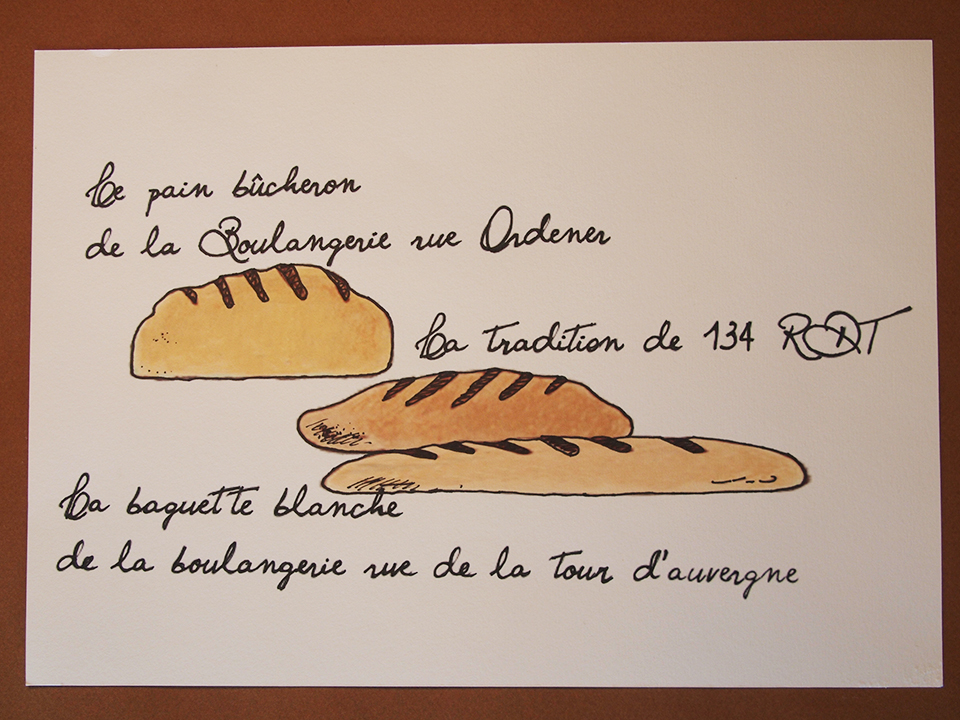 Le pain bûcheron
de la Boulangerie rue Ordener
La tradition de 134 RCDT
La baguette blanche
de la boulangerie rue de la Tour d'auvergne